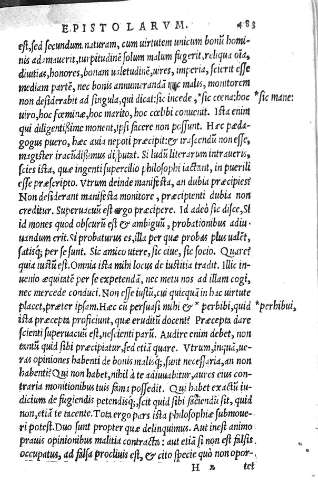 EPISTOLARVM. 483
est, sed secundum naturam, cum uirtutem unicum bonū homi-
nis adamauerit, turpitudinē solum malum fugerit, reliqua oīa,
diuitias, honores, bonam ualetudinē, uires, imperia, scierit esse
mediam partē, nec bonis annumerandā nec malis, monitorem
non desiderabit ad singula, qui dicat: sic incede, *sic cœna: hoc
*sic mane:
uiro, hoc fœminæ, hoc marito, hoc cœlibi conuenit. Ista enim
qui diligentissime monent, ipsi facere non possunt. Hæc pæda-
gogus puero, hæc auia nepoti præcipit: & irascendū non esse,
magister iracūdissimus disputat. Si ludū literarum intraueris,
scies ista, quæ ingenti supercilio philosophi iactant, in puerili
esse præscripto. Vtrum deinde manifesta, an dubia præcipies?
Non desiderant manifesta monitore, præcipienti dubia non
creditur. Superuacuū est ergo præcipere. Id adeò sic disce, Si
id mones quod obscurū est & ambiguū, probationibus adiu-
uandum erit. Si probaturus es, illa per quæ probas plus ualēt,
satisq; per se sunt. Sic amico utere, sic ciue, sic socio. Quare?
quia iustū est. Omnia ista mihi locus de iustitia tradit. Illic in-
uenio æquitatē per se expetendā, nec metu nos ad illam cogi,
nec mercede conduci. Non esse iustū, cui quicquā in hac uirtute
placet, præter ipsam. Hæc cū persuasi mihi & *perbibi, quid
*perhibui,
ista præcepta proficiunt, quæ eruditū docent? Præcepta dare
scienti superuacuū est, nescienti parū. Audire enim debet, non
tantū quid sibi præcipiatur, sed etiā quare. Vtrum, inquā, ue-
ras opiniones habenti de bonis malisq;, sunt necessaria, an non
habenti? Qui non habet, nihil à te adiuuabitur, aures eius con-
traria monitionibus tuis fama possedit. Qui habet exactū iu-
dicium de fugiendis petendisq;, scit quid sibi faciendū sit, quid
non, etiā te tacente. Tota ergo pars ista philosophiæ submoue-
ri potest. Duo sunt propter quæ delinquimus. Aut inest animo
prauis opinionibus malitia contracta: aut etiā si non est falsis
occupatus, ad falsa procliuis est, & cito specie quò non opor-
H 2 tet